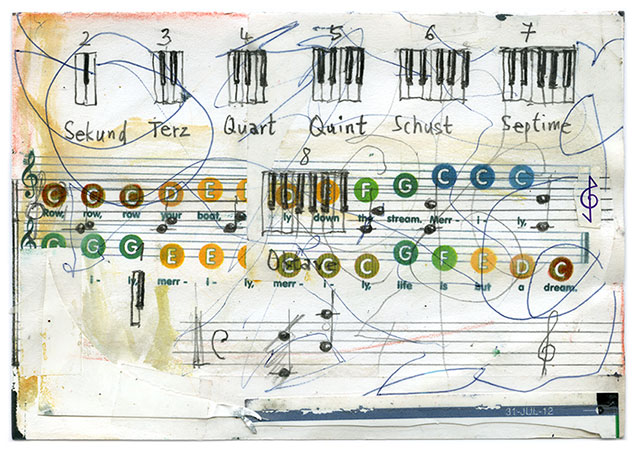 2 3 4 5 6 7
Sekund Terz Quart Quint Schust Septime
8
C C C D E E D E F G C C C
Row, row, row your boat, ly down the stream. Merr - i - ly,
G G G E E E C C G F E D C
Octave
i - ly, merr - i - ly, merr - i - ly, life is but a dream.
31-JUL-12